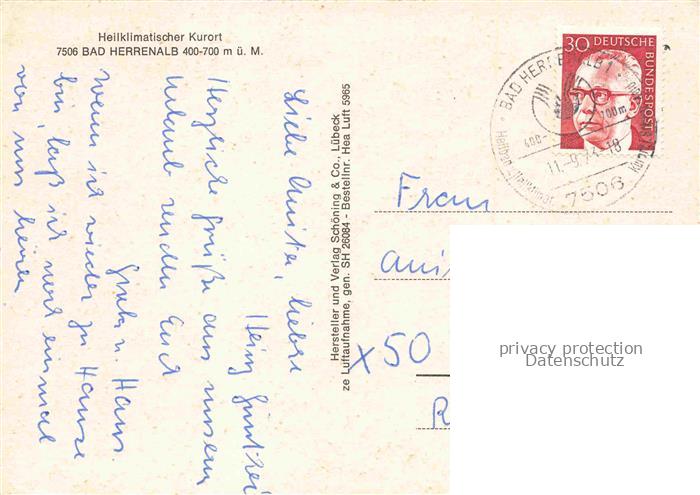 Heilklimatischer Kurort
7506 BAD HERRENALB 400-700 m ü. M.
Liebe Anita, lieber
Heinz Günther
Herzliche Grüße aus unserem
Urlaub senden Euch
Günter u. Hans.
Wenn ich wieder zu Hause
bin, laß ich mal einmal
von uns hören
Hersteller und Verlag Schöning & Co., Lübeck
ze Luftaufnahme, gen. SH 26084 - Bestellnr. Hea Luft 5965
30 DEUTSCHE
BUNDESPOST
BAD HERRENALB 1
400-
700m
18
7506
Frau
Anit
x50
R
privacy protection
Datenschutz